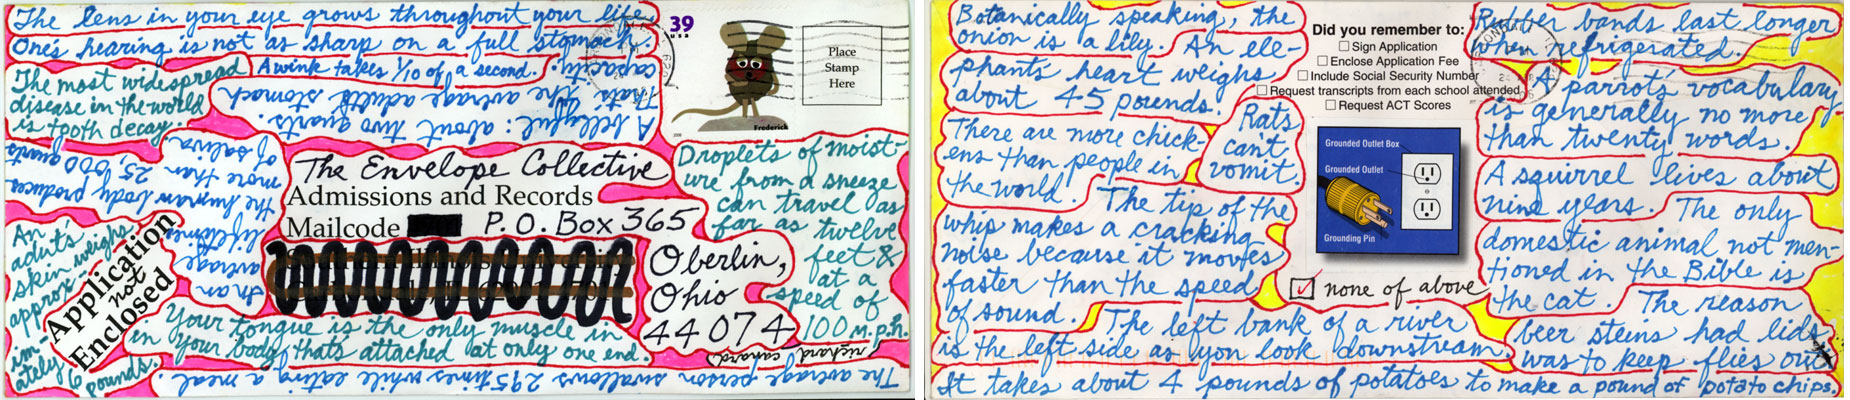 The lens in your eye grows throughout your life.
One's hearing is not as sharp on a full stomach.
The most widespread
disease in the world
is tooth decay.
A wink takes 1/10 of a second.
A bellyful: about two quarts.
That's the average adult's stomach
capacity.
39
USA
Place
Stamp
Here
Frederick
2006
In an
average
lifetime,
the human body produces
more than 25,000 quarts
of saliva.
The Envelope Collective
Admissions and Records
Mailcode
P.O. Box 365
Oberlin,
Ohio
44074
Droplets of moist-
ure from a sneeze
can travel as
far as twelve
feet &
at a
speed of
100 m.p.h.
An
adult's
skin weighs
approx-
im-
ately 6
pounds.
Application
not
Enclosed
Your tongue is the only muscle in
in your body that's attached at only one end.
richard canard
The average person swallows 295 times while eating a meal.
Botanically speaking, the
onion is a lily. An ele-
phant's heart weighs
about 45 pounds.
There are more chick-
ens than people in
the world.
Rats
can't
vomit.
The tip of the
whip makes a cracking
noise because it moves
faster than the speed
of sound.
The left bank of a river
is the left side as you look downstream.
Did you remember to:
Sign Application
Enclose Application Fee
Include Social Security Number
Request transcripts from each school attended
Request ACT Scores
Grounded Outlet Box
Grounded Outlet
Grounding Pin
none of above
Rubber bands last longer
when refrigerated.
A parrot's vocabulary
is generally no more
than twenty words.
A squirrel lives about
nine years. The only
domestic animal not men-
tioned in the Bible is
the cat. The reason
beer steins had lids
was to keep flies out.
It takes about 4 pounds of potatoes to make a pound of potato chips.